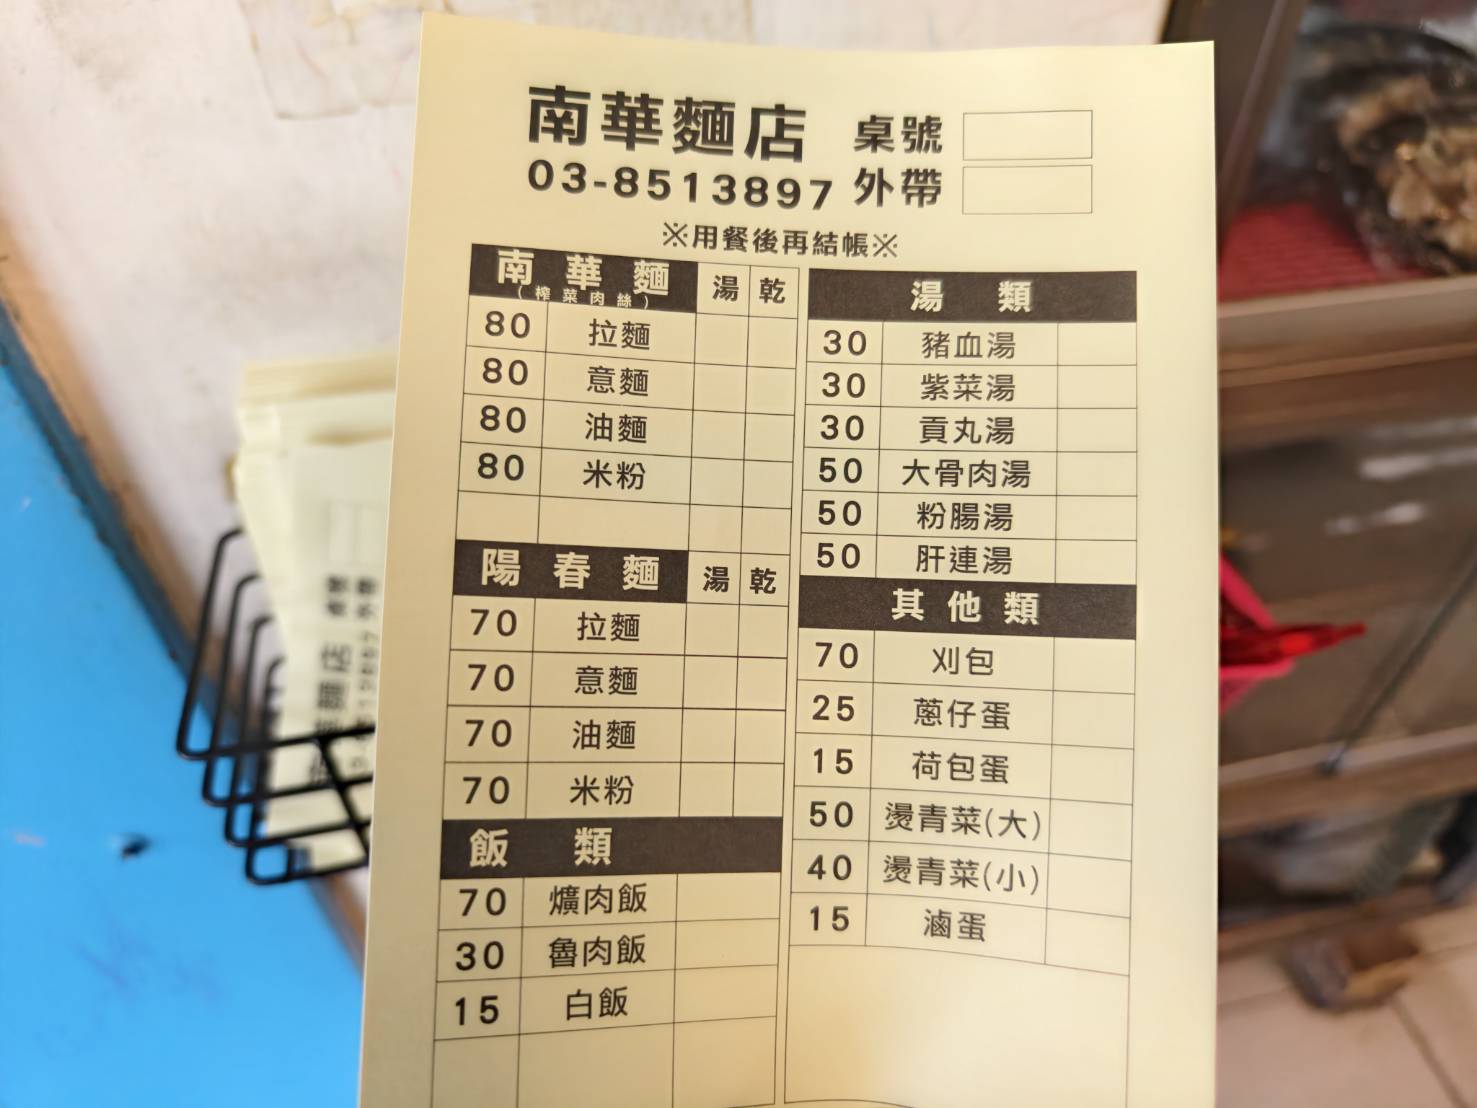 南華麵店 桌號
03-8513897 外帶
※用餐後再結帳※
南華麵 湯 乾
(榨菜肉絲)
80 拉麵
80 意麵
80 油麵
80 米粉
陽春麵 湯 乾
70 拉麵
70 意麵
70 油麵
70 米粉
飯類
70 爌肉飯
30 魯肉飯
15 白飯
湯類
30 豬血湯
30 紫菜湯
30 貢丸湯
50 大骨肉湯
50 粉腸湯
50 肝連湯
其他類
70 刈包
25 蔥仔蛋
15 荷包蛋
50 燙青菜(大)
40 燙青菜(小)
15 滷蛋